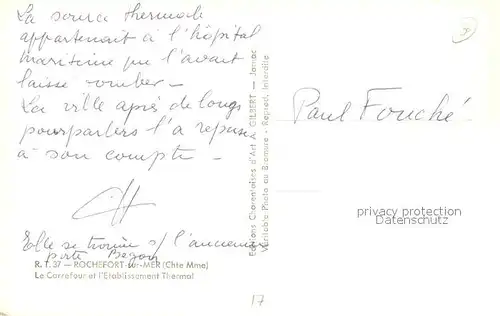 La source thermale
appartenait à l'hôpital
maritime qui l'avait
laissé tomber –
La ville après de longs
pourparlers l'a reprise
à son compte –
Elle se trouve s/ l'ancienne
porte Bégon
R. T. 37 — ROCHEFORT-sur-MER (Chte Mme)
Le Carrefour et l'Etablissement Thermal
Editions Charentaises d'Art GILBERT — Jarnac
Véritable Photo au Bromure - Reprod. Interdite
Paul Fouché
privacy protection
Datenschutz
17